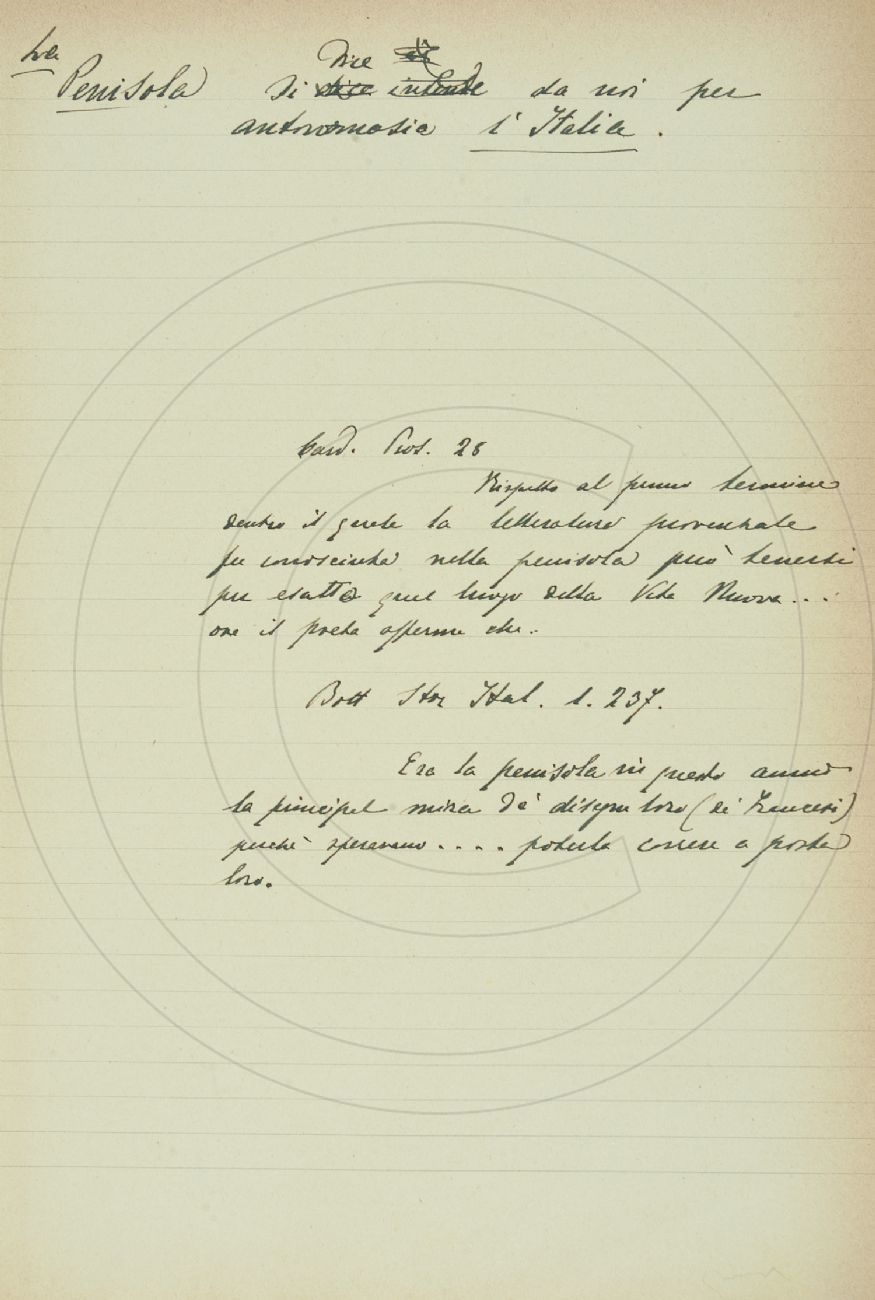 La
Penisola Si dice da noi per
antonomasia l'Italia.
Card. Pros. 28
Rispetto al primo termine
dentro il quale la letteratura provenzale
fu conosciuta nella penisola può tenersi
per esatto quel luogo della Vita Nuova...
ove il poeta afferma che..
Bott Stor Ital. 1. 237.
Era la penisola in questo anno
la principal mira de' disegni loro (dei Francesi)
perchè speravano.... poterla correre a posta
loro.